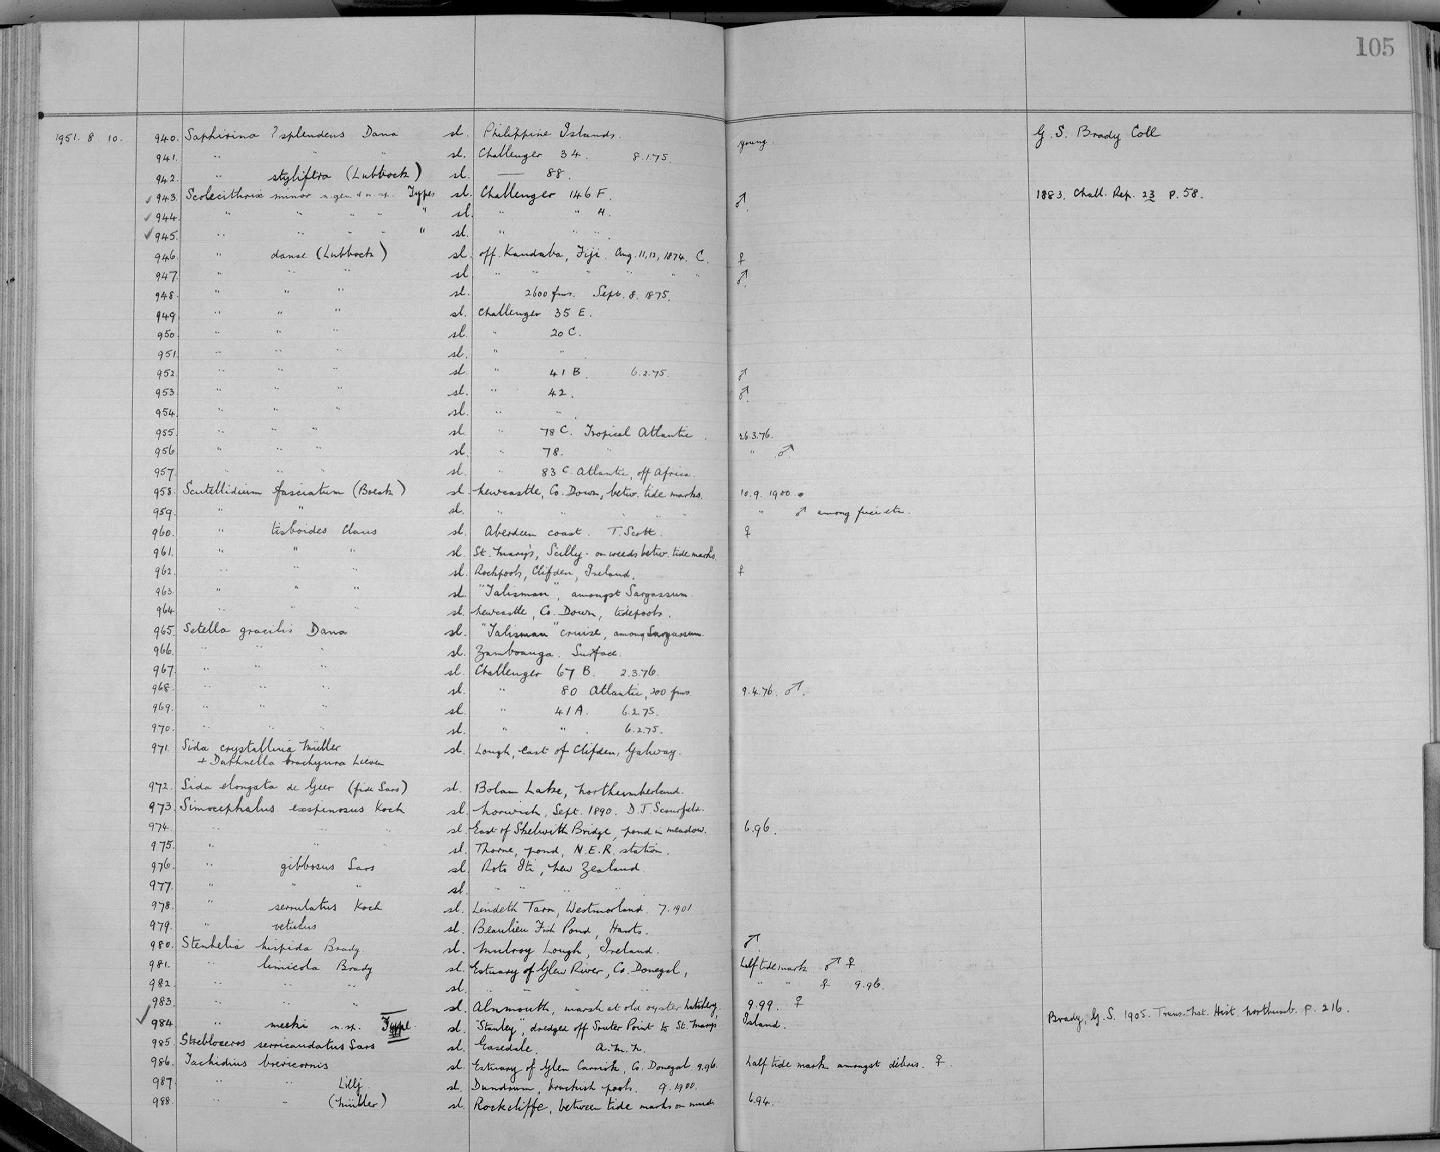 105
1951. 8. 10. 940. Saphirina ? splendens Dana sl. Philippine Islands. young. G. S. Brady Coll
941. " " " sl. Challenger 34. 8.1.75.
942. " stylifera (Lubbock) sl. — 88.
943. Scolecithrix minor n. gen & n. sp. Type sl. Challenger 146 F. ♂. 1883. Chall. Rep. 23 p. 58.
944. " " " " " sl. " " "
945. " " " " " sl. " " "
946. " danae (Lubbock) sl. off Kandaba, Fiji Aug. 11, 12, 1874. C. ♀
947. " " " sl. " " " " " " ♂.
948. " " " sl. 2600 fms. Sept. 8. 1875.
949. " " " sl. Challenger 35 E.
950. " " " sl. " 20 C.
951. " " " sl. " "
952. " " " sl. " 41 B. 6.2.75. ♂
953. " " " sl. " 42. ♂.
954. " " " sl. " "
955. " " " sl. " 78 C. Tropical Atlantic. 26.3.76.
956. " " " sl. " 78. " " ♂
957. " " " sl. " 83 C. Atlantic, off Africa
958. Scutellidium fasciatum (Boeck) sl. Newcastle, Co. Down, betw. tide marks. 10.9.1900.
959. " " sl. " " " " " " ♂ among fuci etc.
960. " tisboides Claus sl. Aberdeen coast. T. Scott. ♀
961. " " " sl. St. Mary's, Scilly. on weeds betw. tide marks.
962. " " " sl. Rockpools, Clifden, Ireland. ♀
963. " " " sl. "Talisman", amongst Sargassum.
964. " " " sl. Newcastle, Co. Down, tidepools.
965. Setella gracilis Dana sl. "Talisman" cruise, among Sargassum.
966. " " " sl. Zamboanga. Surface.
967. " " " sl. Challenger 67 B. 2.3.76.
968. " " " sl. " 80 Atlantic, 200 fms 9.4.76. ♂.
969. " " " sl. " 41 A. 6.2.75.
970. " " " sl. " " 6.2.75.
971. Sida crystallina Müller sl. Lough, east of Clifden, Galway.
+ Daphnella brachyura Lieven
972. Sida elongata de Geer (fide Sars) sl. Bolam Lake, Northumberland.
973. Simocephalus exspinosus Koch sl. Norwich, Sept. 1890. D. J Scourfield.
974. " " " sl. East of Skelwith Bridge, pond in meadow. 6.96.
975. " " " sl. Thorne, pond, N.E.R. station.
976. " gibbosus Sars sl. Roto Iti, New Zealand
977. " " " sl. " " " "
978. " serrulatus Koch sl. Lindeth Tarn, Westmorland. 7.1901
979. " vetulus sl. Beaulieu Fish Pond, Hants.
980. Stenhelia hispida Brady sl. Mulroy Lough, Ireland. ♂
981. " limicola Brady sl. Estuary of Glen River, Co. Donegal, half tide mark ♂ ♀
982 " " " sl. " " " " " ♀ 9.96.
983 " " " sl. Alnmouth, marsh at old oyster hatchery, 9.99. ♀
984 " meeki n. sp. Type sl. "Stanley", dredged off Souter Point to St. Mary's Island. Brady, G. S. 1905. Trans. Nat. Hist. Northumb. p. 216.
985. Streblocerus serricaudatus Sars sl. Easedale. A.M.N.
986. Tachidius brevicornis sl. Estuary of Glen Carrick, Co. Donegal 9.96. half tide mark amongst débris. ♀.
987. " " Lillj. sl. Dundrum, brackish pools. 9.1900.
988. " " (Müller) sl. Rockcliffe, between tide marks on mud. 6.94.